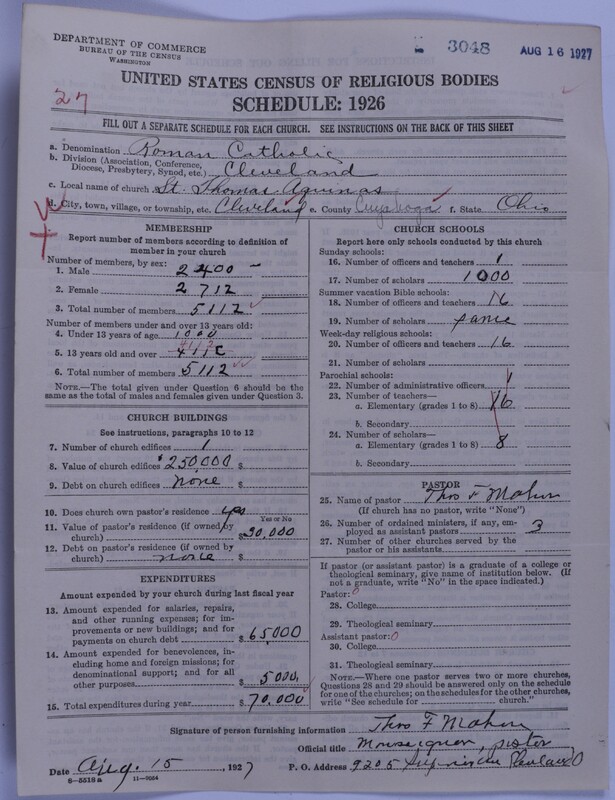 DEPARTMENT OF COMMERCE
BUREAU OF THE CENSUS
WASHINGTON
3048
AUG 16 1927
27
UNITED STATES CENSUS OF RELIGIOUS BODIES
SCHEDULE: 1926
FILL OUT A SEPARATE SCHEDULE FOR EACH CHURCH. SEE INSTRUCTIONS ON THE BACK OF THIS SHEET
a. Denomination Roman Catholic
b. Division (Association, Conference, Diocese, Presbytery, Synod, etc.) Cleveland
c. Local name of church St. Thomas Aquinas
d. City, town, village, or township, etc. Cleveland e. County Cuyahoga f. State Ohio
MEMBERSHIP
Report number of members according to definition of
member in your church
Number of members, by sex:
1. Male 2400
2. Female 2712
3. Total number of members 5112
Number of members under and over 13 years old:
4. Under 13 years of age 1000
4112
5. 13 years old and over
6. Total number of members 5112
NOTE.—The total given under Question 6 should be
same as the total of males and females given under Question 3.
CHURCH BUILDINGS
See instructions, paragraphs 10 to 12
7. Number of church edifices 1
8. Value of church edifices $250,000 $
9. Debt on church edifices none $
10. Does church own pastor's residence yes
Yes or No
11. Value of pastor's residence (if owned by
church) $
12. Debt on pastor's residence (if owned by
church) none $
EXPENDITURES
Amount expended by your church during last fiscal year
13. Amount expended for salaries, repairs,
and other running expenses; for im-
provements or new buildings; and for
payments on church debt $65,000
14. Amount expended for benevolences, in-
cluding home and foreign missions; for
denominational support; and for all
other purposes 5000
15. Total expenditures during year $70,000
CHURCH SCHOOLS
Report here only schools conducted by this church
Sunday schools:
16. Number of officers and teachers 1
17. Number of scholars 1000
Summer vacation Bible schools:
18. Number of officers and teachers 16
19. Number of scholars same
Week-day religious schools:
20. Number of officers and teachers 16
21. Number of scholars
Parochial schools:
22. Number of administrative officers 1
23. Number of teachers—
a. Elementary (grades 1 to 8) 16
b. Secondary
24. Number of scholars—
a. Elementary (grades 1 to 8) 8
b. Secondary
PASTOR
25. Name of pastor Thos F Mahon
(If church has no pastor, write "None")
26. Number of ordained ministers, if any, em-
ployed as assistant pastors 3
27. Number of other churches served by the
pastor or his assistants
If pastor (or assistant pastor) is a graduate of a college or
theological seminary, give name of institution below. (If
not a graduate, write "No" in the space indicated.)
Pastor: 0
28. College
29. Theological seminary
Assistant pastor: 0
30. College
31. Theological seminary
NOTE.—Where one pastor serves two or more churches,
Questions 28 and 29 should be answered only on the schedule
for one of the churches; on the schedules for the other churches,
write "See schedule for church."
Signature of person furnishing information Thos F Mahon
Official title pastor
Date Aug. 15, 1927 P. O. Address 9205 Superior
8—5518a 11—9084